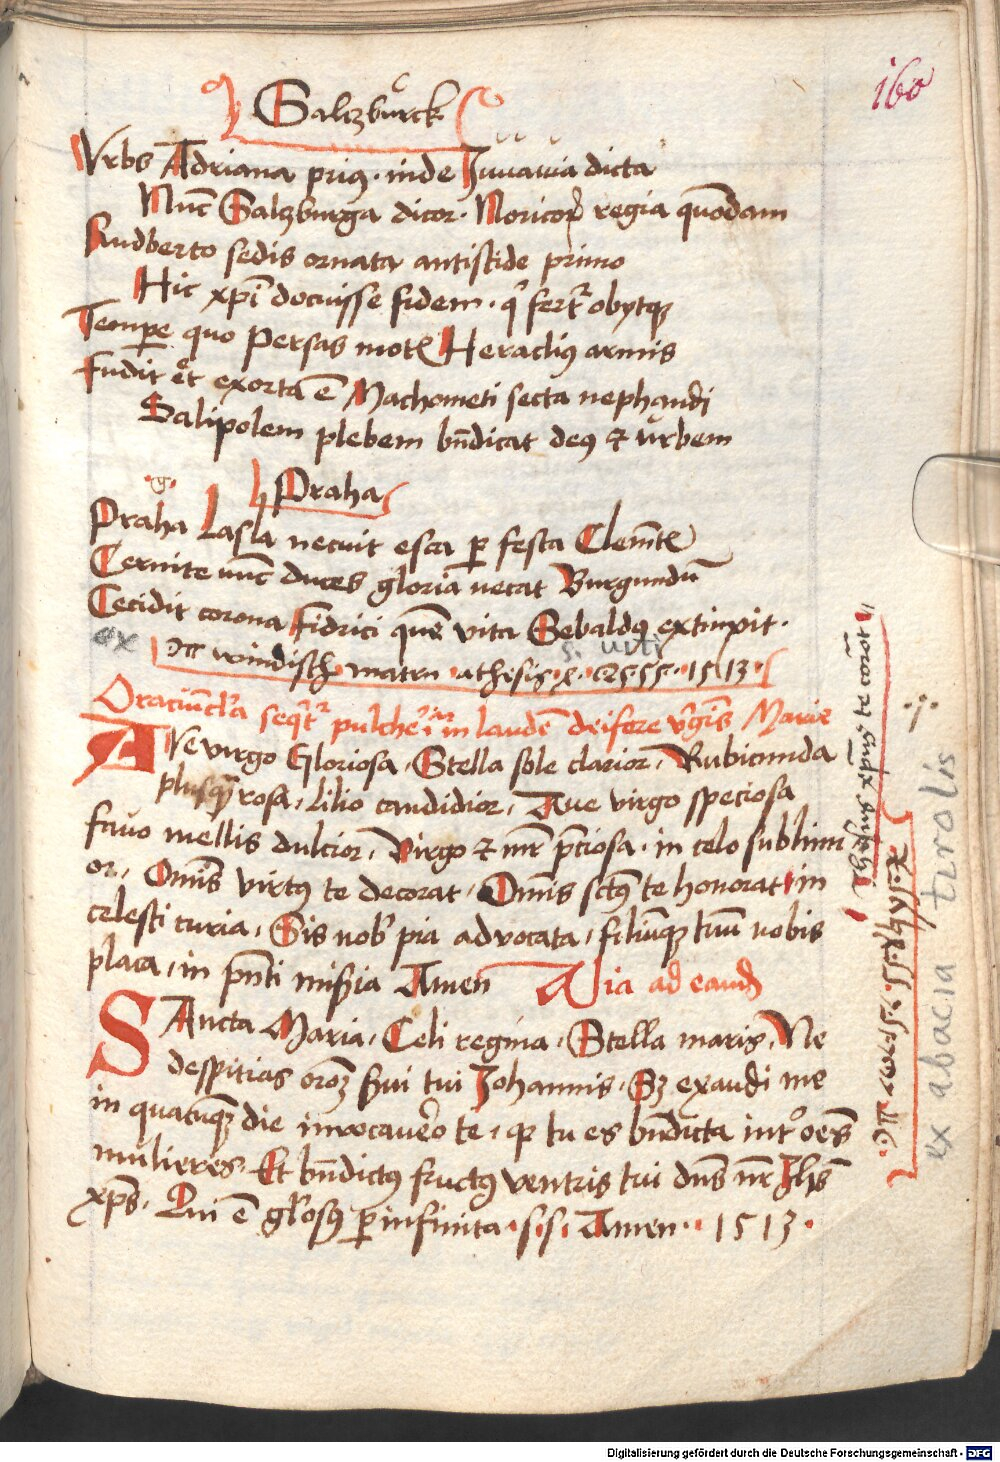 160
Salczburck
Urbs Adriana prius · inde Juuauia dicta
Nūc Salczburga dicor · Noricoꝝ regia quōdam
Rudberto sedis ornata antistide primo
Hic xp̄i docuisse fidem · q̄ fertʳ obytqꝫ
Tempore quo Persas motꝭ Heraclius armis
Fudit et exorta ē Machometi secta nephandi
Salipolem plebem bn̄dicat deus et urbem
Praha
Praha Lasla necuit esca ꝑ festa Clemētꝭ
Cernite nūc duces gloria necat Burgundū
Cecidit corona Fidrici quē vita Sebaldꝰ extinxit ·
ex
windisch matrn · athesis · 1513 ·
Oraciūcl'a seqt̄ʳ pulcherͥa in laudē deifere v̓gīs Marie
AVe virgo Gloriosa, Stella sole clarior, Rubicunda
plusqȝ rosa, lilio candidior, Aue virgo speciosa
fauo mellis dulcior, Virgo et mr̄ p̄ciosa, in celo sublimi
or, Om̄is virtꝰ te decorat, Om̄is sctꝰ te honorat, in
celesti curia, Sis nob' pia advocata, filiūqꝫ tuū nobis
placa, in pn̄ti miẜia Amen Alia ad eandē
SAncta Maria, Celi regina, Stella maris, Ne
despicias oroēȝ ẜui tui Johannis, Sȝ exaudi me
in quacūqꝫ die inuocauero te, qꝫ tu es bn̄dicta int' oēs
mulieres, Et bn̄dictꝰ fructꝰ ventris tui dn̄s nr̄ Jhs̄
xp̄s, Qui ē gl'osꝰ ꝑ infinita · s · s · Amen · 1513 ·
ex abacia tirolis